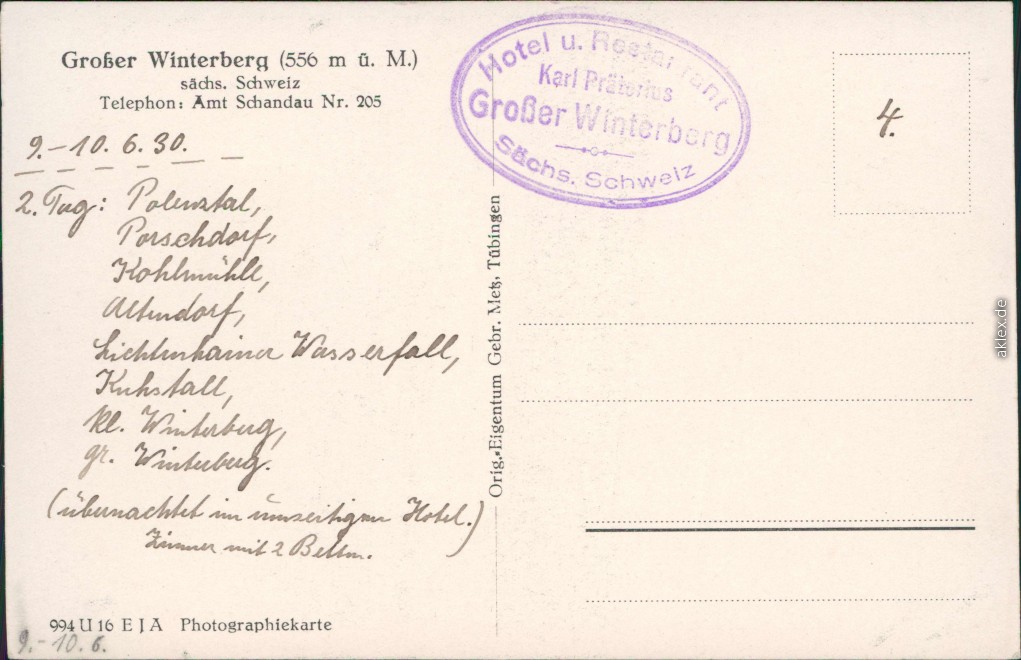 Großer Winterberg (556 m ü. M.)
sächs. Schweiz
Telephon: Amt Schandau Nr. 205
9.-10. 6. 30.
2. Tag: Polenztal,
Porschdorf,
Kohlmühle,
Altendorf,
Lichtenhainer Wasserfall,
Kuhstall,
kl. Winterberg,
gr. Winterberg.
(übernachtet im umseitigen Hotel.)
Zimmer mit 2 Betten.
994 U 16 E J A Photographiekarte
9.-10. 6.
Orig.-Eigentum Gebr. Metz, Tübingen
Hotel u. Restaurant
Karl Prätorius
Großer Winterberg
Sächs. Schweiz
4.
aklex.de